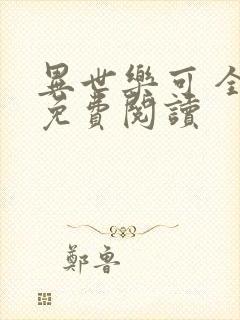 異世樂可全
免費閱讀
鄭魯